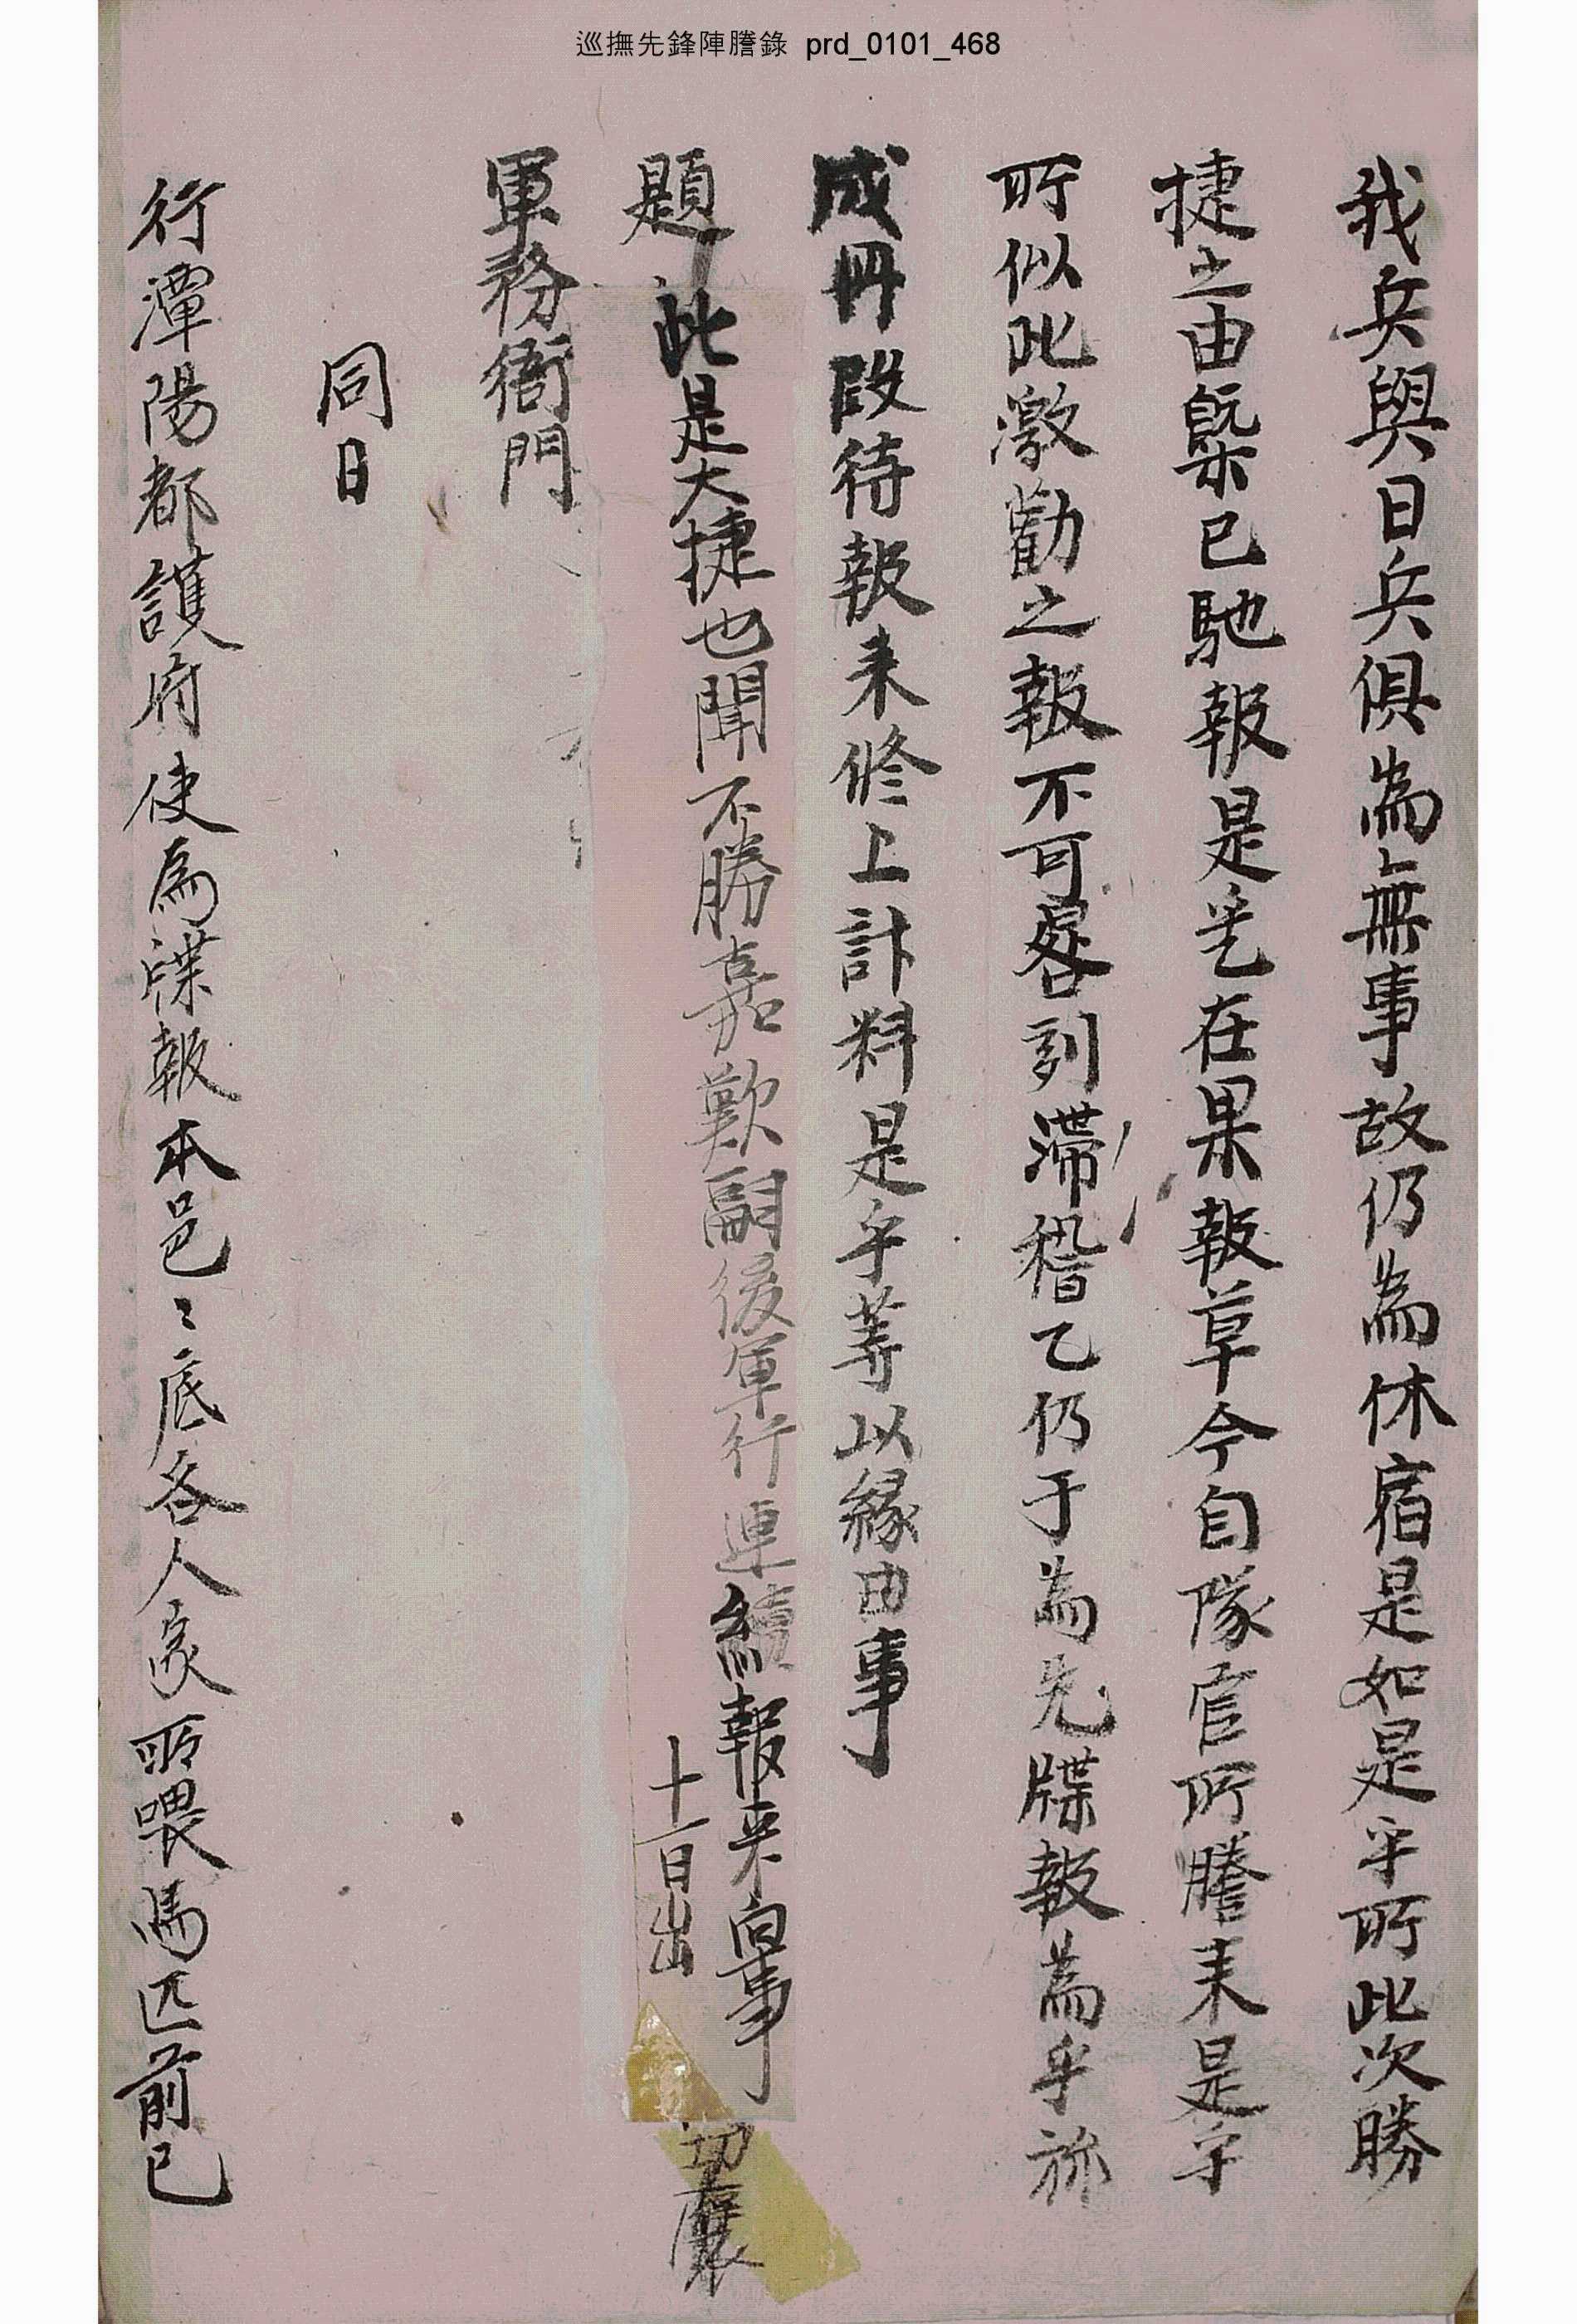 巡撫先鋒陣謄錄 prd_0101_468
我兵與日兵俱為無事故仍為休宿是如是乎所此次勝
捷之由槩已馳報是乎在果報草今自隊官所謄來是乎
所似此激勸之報不可晷刻滯稽乙仍于為先牒報為乎旀
成冊段待報來修上計料是乎等以緣由事
題 此是大捷也聞不勝嘉歎嗣後軍行連續報來向事
十一日出
軍務衙門
同日
行潭陽都護府使為牒報本邑〻底各人家所喂馬匹前已